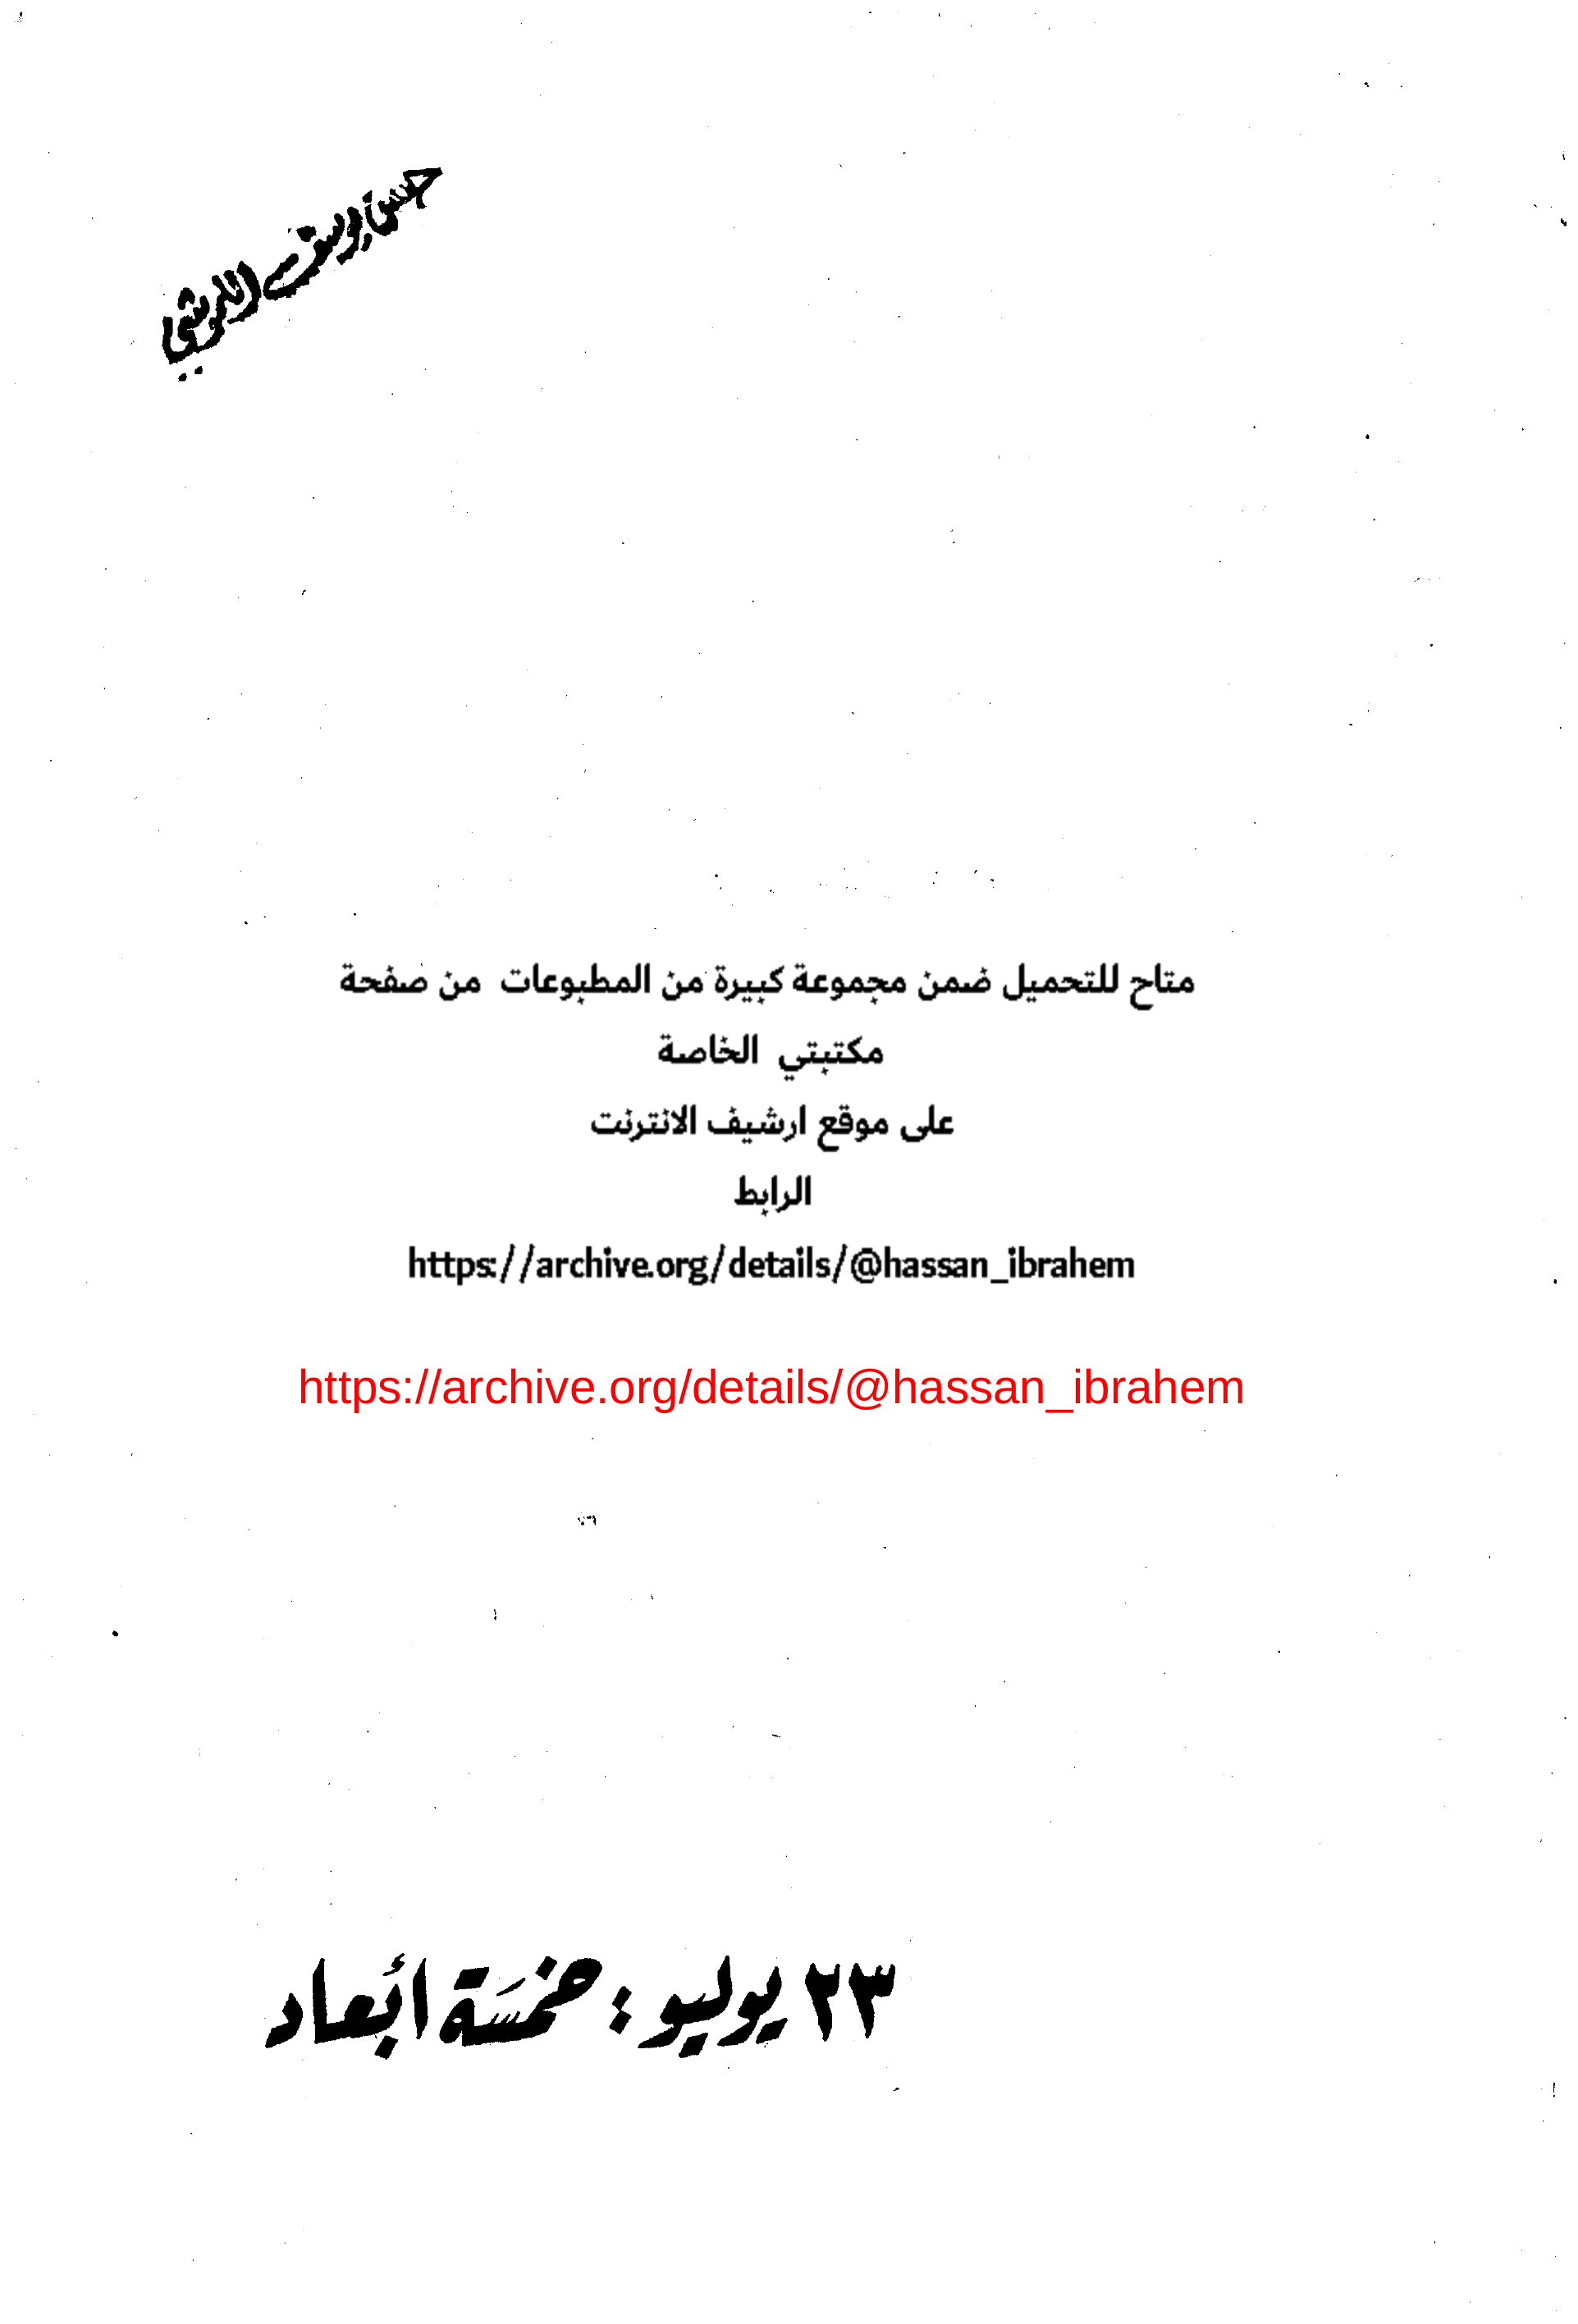 متاح للتحميل ضمن مجموعة كبيرة من المطبوعات من صفحة
مكتبتي الخاصة
على موقع ارشيف الانترنت
الرابط
https://archive.org/details/@hassan_ibrahem
https://archive.org/details/@hassan_ibrahem
٢٣ يوليو : خمسَة أبعاد